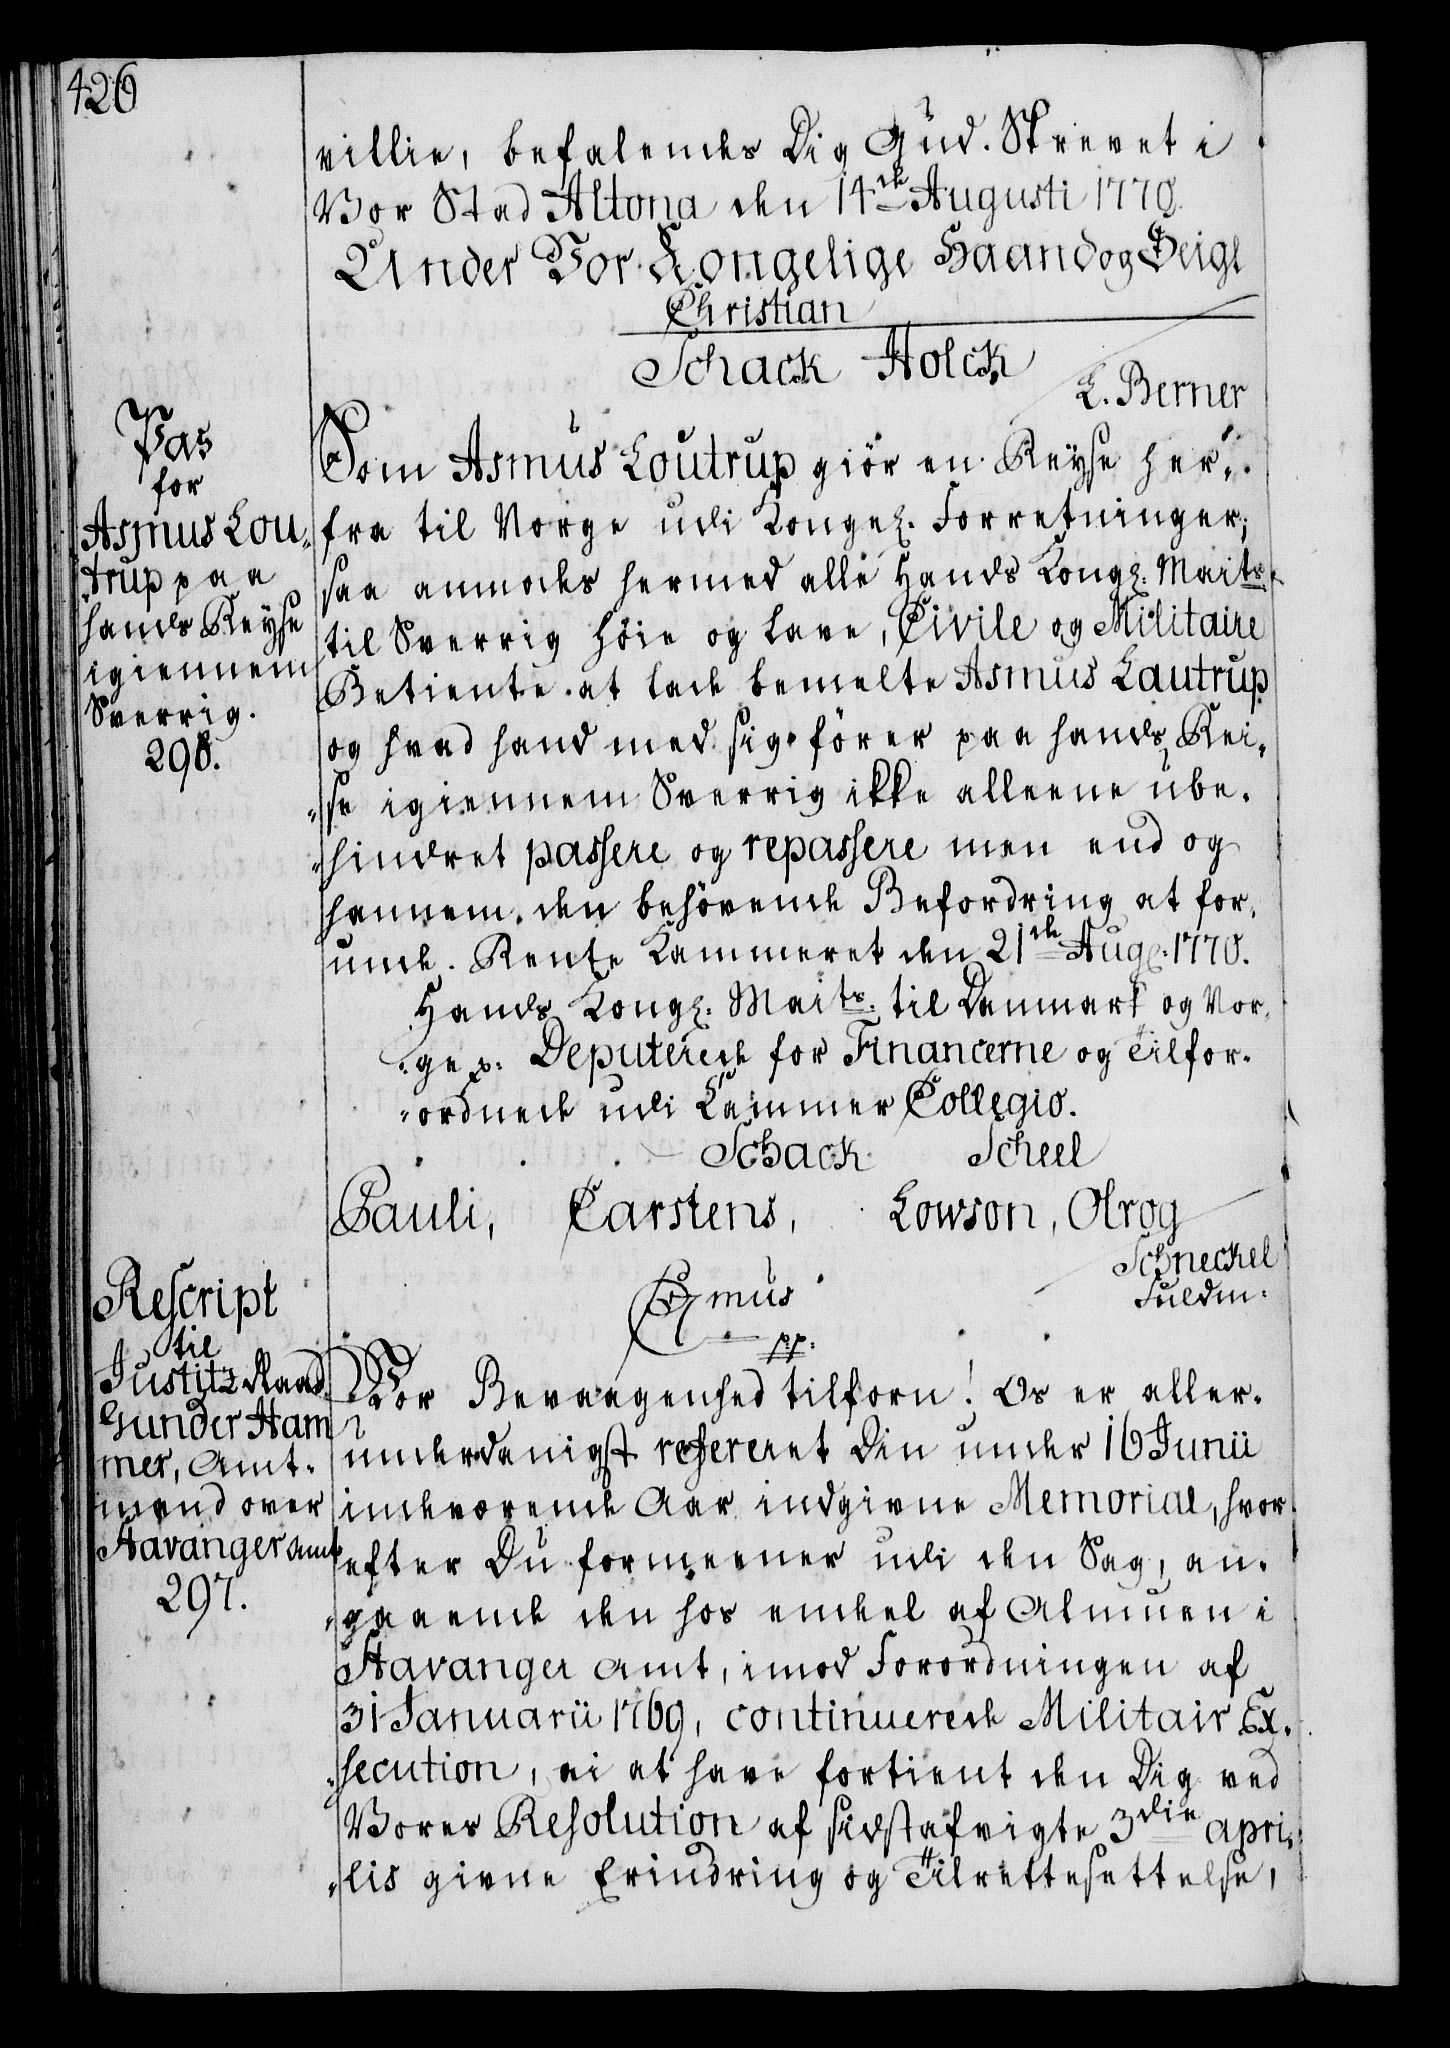 426
villie, befalendes Dig Gud. Skrevet i
Vor Stad Altona den 14de Augusti 1770.
Under Vor Kongelige Haand og Seigl
Christian
Schack Holck
L. Berner
Pas
for
Asmus Lou„
„trup paa
hands Reyse
igiennem
Sverrig.
296.
Som Asmus Loutrup giör en Reyse her„
fra til Norge udi Kongel. Forretninger;
saa anmodes hermed alle Hands Kongl. Maits
til Sverrig höie og lave, Civile og Militaire
Betiente at lade bemelte Asmus Lautrup
og hvad hand med sig förer paa hands Rei„
„se igiennem Sverrig ikke alleene ube„
„hindret passere og repassere men end og
hannem den behövende Befordring at for„
unde. Rente Kammeret den 21de Augl. 1770.
Hands Kongl. Maits. til Danmark og Nor„
„ge p. Deputerede for Financerne og Tilfor„
„ordnede udi Cammer Collegio.
Schack Scheel
Pauli, Carstens, Lowson, Olrog
Schneckel
Fuldm.
Rescript
til
Justitz Raad
Gunder Ham
mer, Amt„
mand over
Stavanger Amt
297.
C7mus
pp.
Vor Bevaagenhed tilforn! Os er aller„
underdanigst refereret Din under 16 Junii
indeværende Aar indgivne Memorial, hvor
efter Du formeener udi den Sag, an„
„gaaende den hos endeel af Almuen i
Stavanger Amt, imod Forordningen af
31 Januarii 1769, continuerede Militair Ex„
„secution, ei at have fortient den Dig ved
Vores Resolution af sidstafvigte 3die Apri„
„lis givne Erindring og Tilrettesettelse,